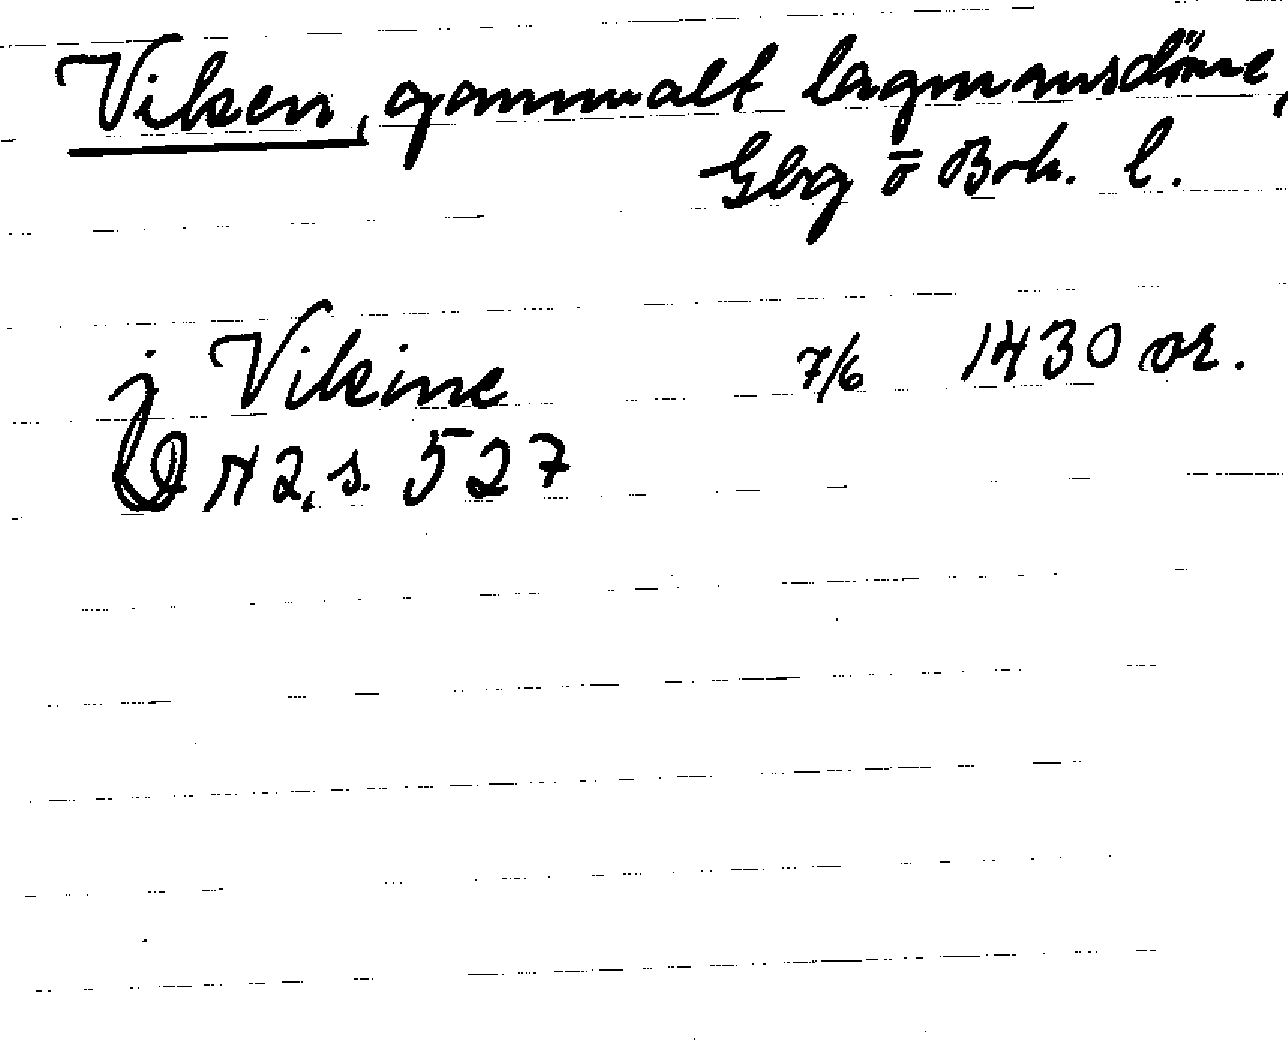 Viken, gammalt lagmansdöme,
Gbg o Boh. l.
j Vikine 7/6 1430 or.
N 2, s. 527